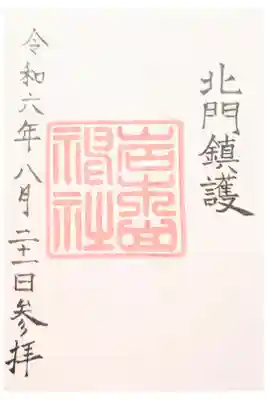 北門鎮護
岩木山
神社
令和六年八月二十一日参拝